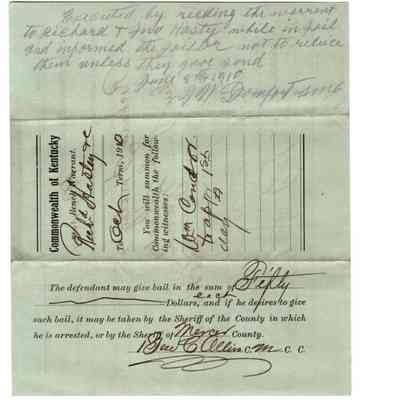 Executed by reading the warrant
to Richard & Jno Hasty while in jail
and informed the jailor not to release
them unless they gave bond
June 8th 1910
Commonwealth of Kentucky
vs. Bench Warrant.
Rich'd Hasty &c
To Oct Term, 1910
You will summon for
Commonwealth the follow-
ing witnesses.
to apr 1st
day
The defendant may give bail in the sum of Fifty
each Dollars, and if he desires to give
such bail, it may be taken by the Sheriff of the County in which
he is arrested, or by the Sheriff of Mercer County.
Allin C. M. C. C.